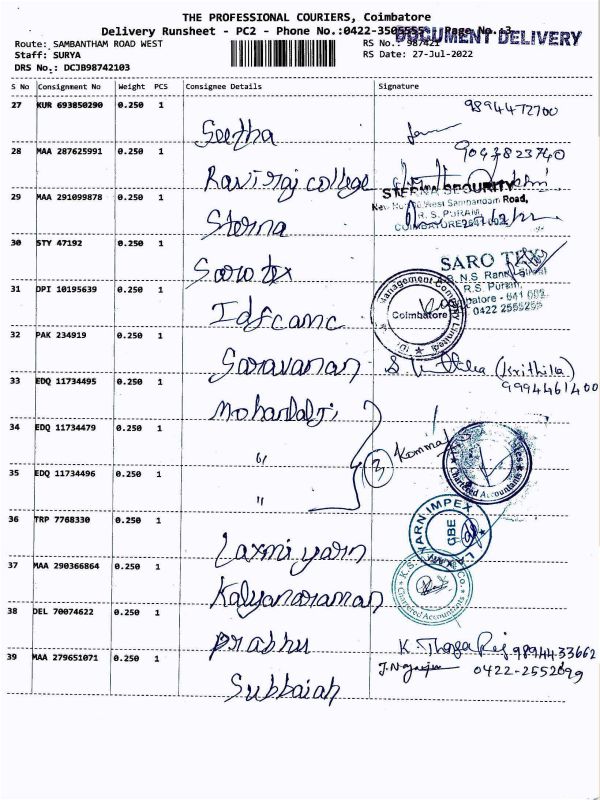 THE PROFESSIONAL COURIERS, Coimbatore
Delivery Runsheet - PC2 - Phone No.:0422-3505555 Page No. 3
DOCUMENT DELIVERY
Route: SAMBANTHAM ROAD WEST
RS No.: 987421
Staff: SURYA
RS Date: 27-Jul-2022
DRS No.: DCJB98742103
S No Consignment No Weight PCS Consignee Details Signature
27 KUR 693850290 0.250 1 Seetha
9894472700
28 MAA 287625991 0.250 1 Raviraj college
9047823740
29 MAA 291099878 0.250 1 Sterna
STERNA SECURITY
West Sambandam Road,
R. S. PURAM,
COIMBATORE 641 002.
30 STY 47192 0.250 1 Saro tex
SARO TEX
N.S. Rank Street
R.S. Puram,
Coimbatore - 641 002.
0422 2555255
31 DPI 10195639 0.250 1 Idfcamc
Management Company Limited
Coimbatore
32 PAK 234919 0.250 1 Saravanan
(Krithika)
9994461400
33 EDQ 11734495 0.250 1 Mohanlalji
34 EDQ 11734479 0.250 1 "
3
Chartered Accountants
35 EDQ 11734496 0.250 1 "
36 TRP 7768330 0.250 1 Laxmi yarn
YARN IMPEX
CBE
37 MAA 290366864 0.250 1 Kalyanaraman
Chartered Accountants
38 DEL 70074622 0.250 1 Prabhu
K. Thaga Raj 9894433662
39 MAA 279651071 0.250 1 Subbaiah
0422-2552099